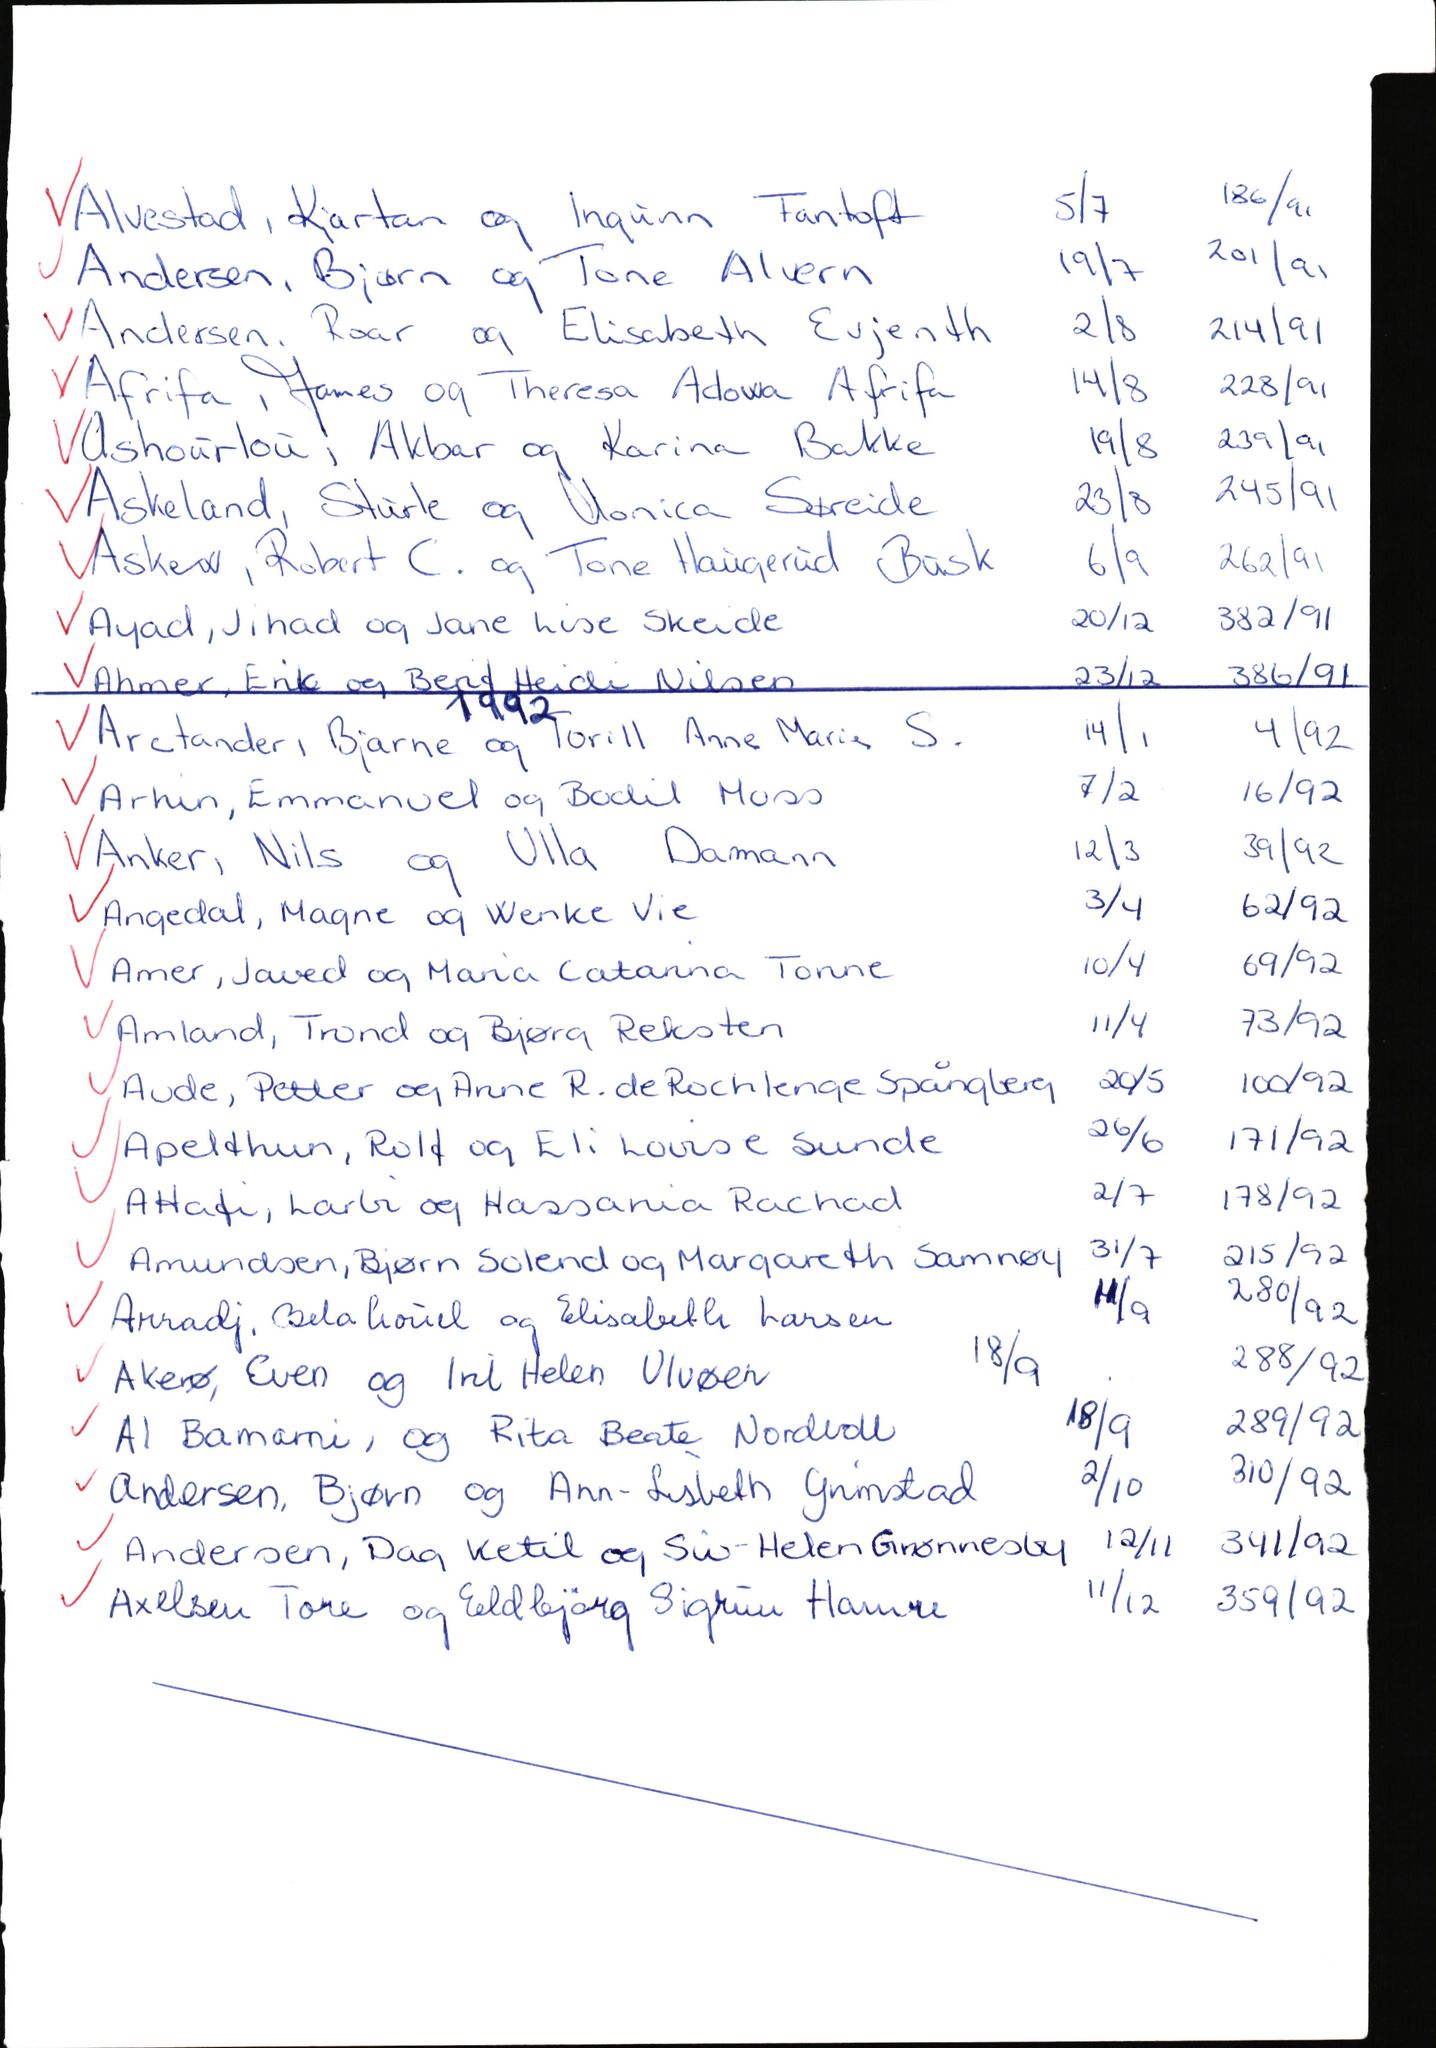 Alvestad, Kjartan og Ingunn Fantoft 5/7 186/91
Andersen, Bjørn og Tone Alvern 19/7 201/91
Andersen, Roar og Elisabeth Evjenth 2/8 214/91
Afrifa, James og Theresa Adowa Afrifa 14/8 228/91
Ashourlou, Akbar og Karina Bakke 19/8 239/91
Askeland, Sturle og Monica Søreide 23/8 245/91
Askew, Robert C. og Tone Haugerud Busk 6/9 262/91
Ayad, Jihad og Jane Lise Skeide 20/12 382/91
Ahmer, Erik og Berit Heidi Nilsen 23/12 386/91
1992
Arctander, Bjarne og Torill Anne Marie S. 14/1 4/92
Arhin, Emmanuel og Bodil Moss 7/2 16/92
Anker, Nils og Ulla Damann 12/3 39/92
Angedal, Magne og Wenke Vie 3/4 62/92
Amer, Javed og Maria Catarina Tonne 10/4 69/92
Amland, Trond og Bjørg Reksten 11/4 73/92
Aude, Petter og Anne R. de Rochlenge Spångberg 20/5 100/92
Apelthun, Rolf og Eli Louise Sunde 26/6 171/92
Attafi, Larbi og Hassania Rachad 2/7 178/92
Amundsen, Bjørn Solend og Margareth Samnøy 31/7 215/92
Arradj, og Elisabeth Larsen 11/9 280/92
Akerø, Even og Helen Ulvøen 18/9 288/92
Al Bamarni, og Rita Beate Nordvoll 18/9 289/92
Andersen, Bjørn og Ann-Lisbeth Grimstad 2/10 310/92
Andersen, Dag Ketil og Siv-Helen Grønnesby 12/11 341/92
Axelsen Tore og Eldbjörg Sigrun Hamre 11/12 359/92